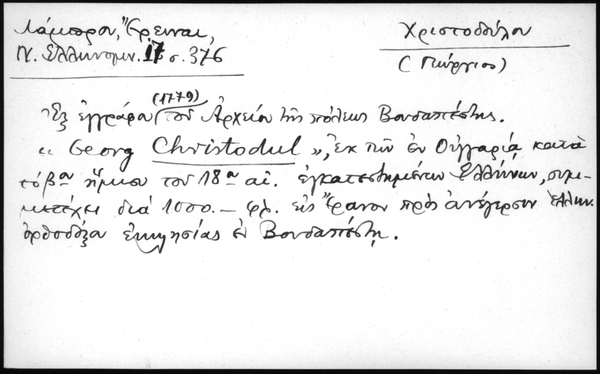 Λάμπρου, Ἔρευναι,
Ν. Ἑλληνομν. 17 σ. 376
Χριστοδούλου
(Γεώργιος)
Ἐξ ἐγγράφου (1779) τοῦ Ἀρχείου τῆς πόλεως Βουδαπέστης.
« Georg Christodul », ἐκ τῶν ἐν Οὑγγαρίᾳ κατὰ
τὸ βον ἥμισυ τοῦ 18ου αἰ. ἐγκατεστημένων Ἑλλήνων, συμ-
μετέχει διὰ 1000.– φλ. εἰς ἔρανον πρὸς ἀνέγερσιν ἑλλην.
ὀρθοδόξου ἐκκλησίας ἐν Βουδαπέστῃ.